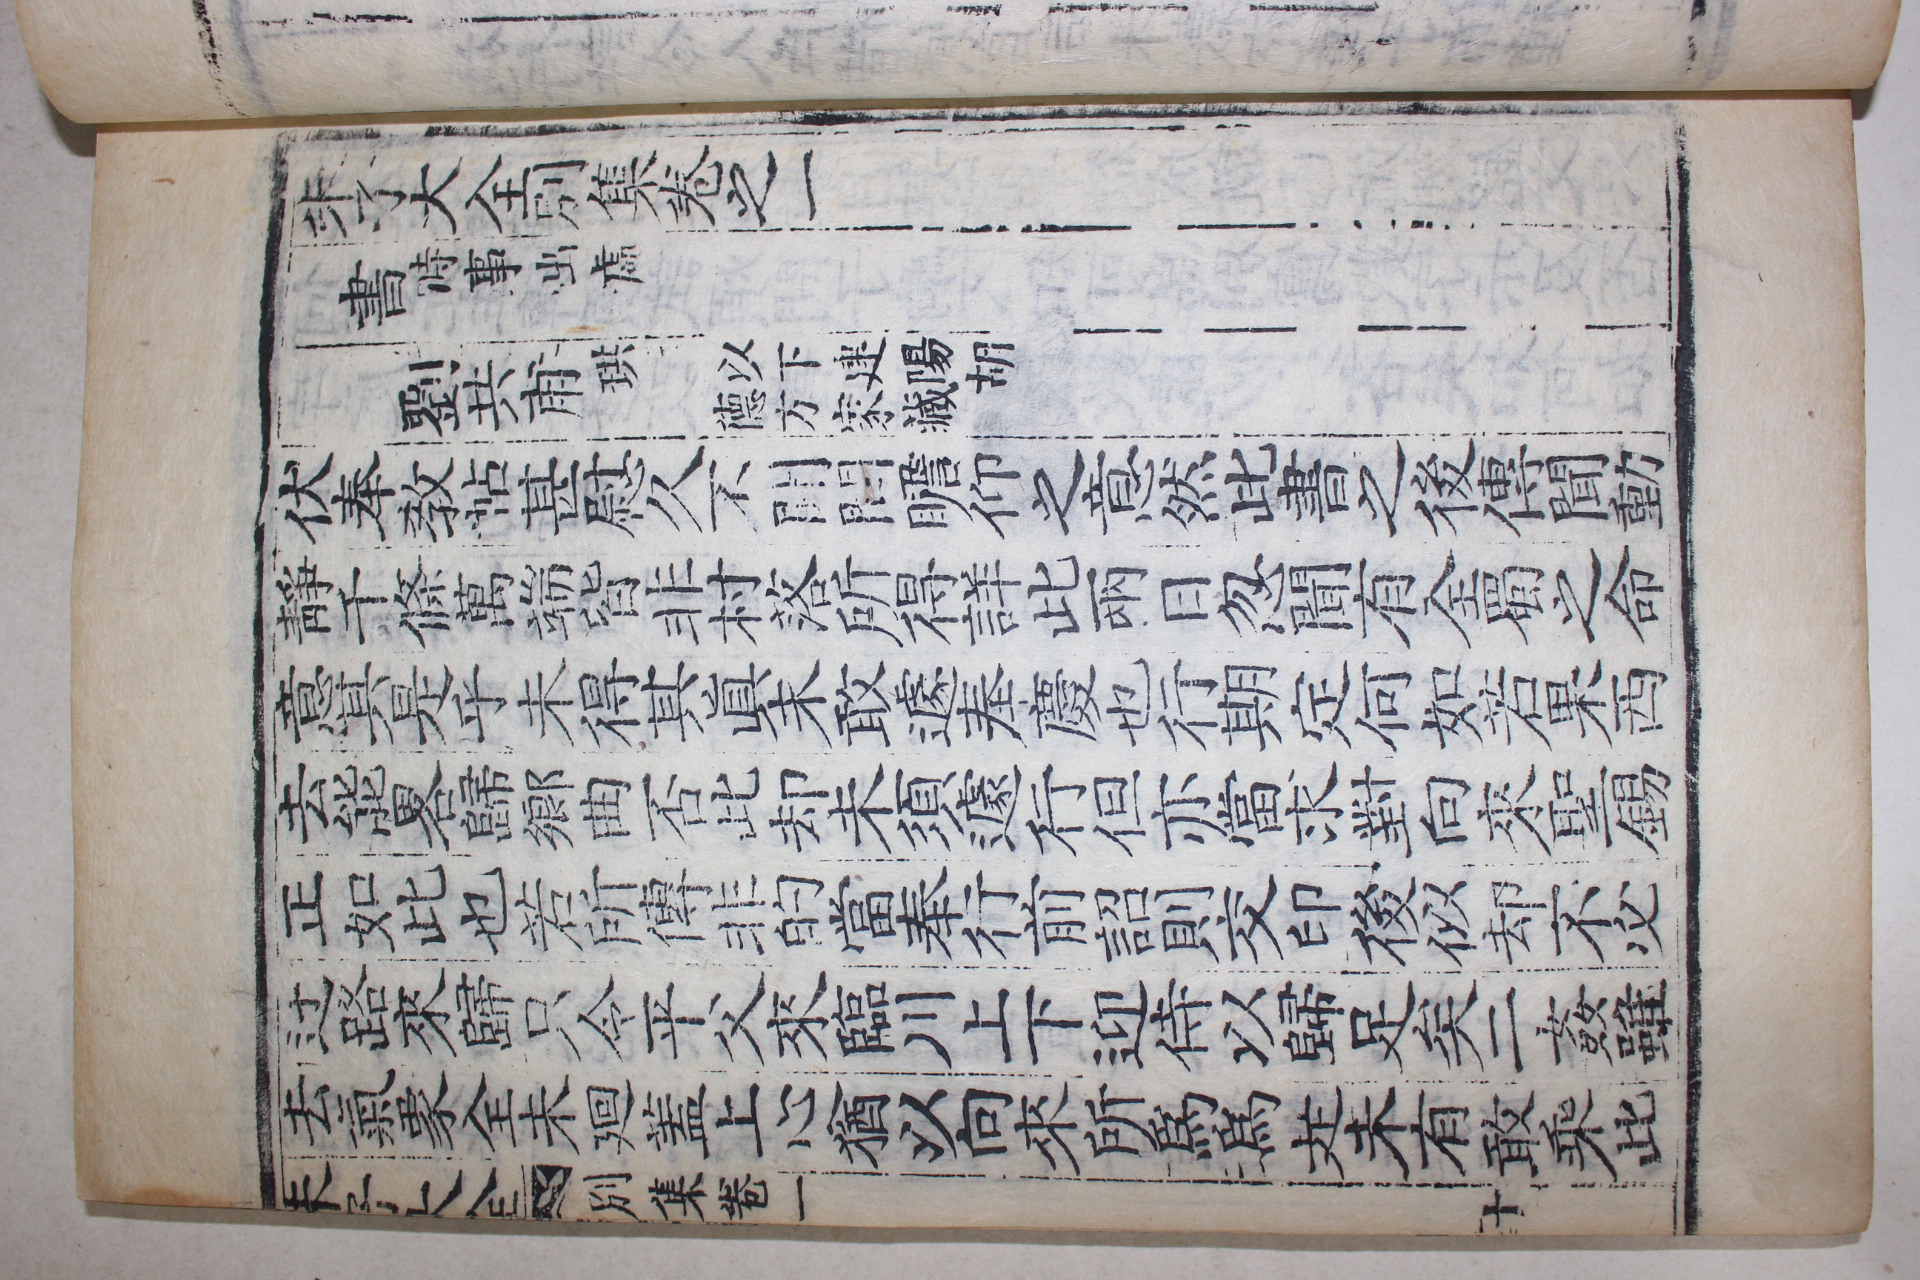 朱子大全別集卷之一
書 時事出處
劉共甫 珙 以下建陽胡德方家藏
伏奉敎帖甚慰久不聞問瞻仰之意然此書之後傳聞動
靜千條萬端皆非村落所得詳此兩日忽聞有全蜀之命
意其是乎未得其眞未敢遽奉慶也行期定何如若果西
去能畧歸鄉曲否此却未須遽行但亦當求對向來聖錫
正如此也若所傳非的當奉行前詔則交印後似却不必
过路來歸只令平父來臨川上下迎侍以歸足矣二姦雖
去氣象全未廻蓋上心猶以向來所爲爲是未有敢乘此
朱子大全 別集卷一 十